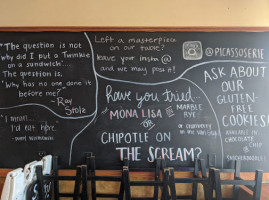 "The question is not
why did I put a Twinkie
on a sandwich".
The question is,
"Why has no one done it
before me?"
- Ray
Stole
"I mean...
I'd eat here.
Left a masterpiece
on our table?
leave your insta @
and we may post it!
@PICASSOSERIE
have you tried
MONA LISA
on
MARBLE
RYE
OR
CHIPOTLE ON
THE SCREAM?
ASK ABOUT
OUR
GLUTEN-
FREE
COOKIES!
AVAILABLE IN
CHOCOLATE
CHIP